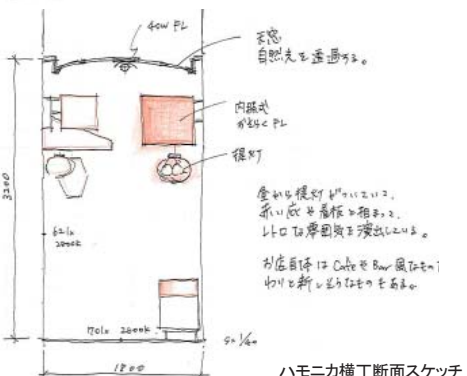 40W FL
天窓
自然光を透過する。
内照式
かんばん FL
提灯
昼から提灯がついていて、
赤い庇や看板と相まって、
レトロな雰囲気を演出している。
お店自体は CafeやBar風なもの
わりと新しそうなものもある。
3200
62lx
2800K
70lx 2800K
S=1/40
1800
ハモニカ横丁断面スケッチ